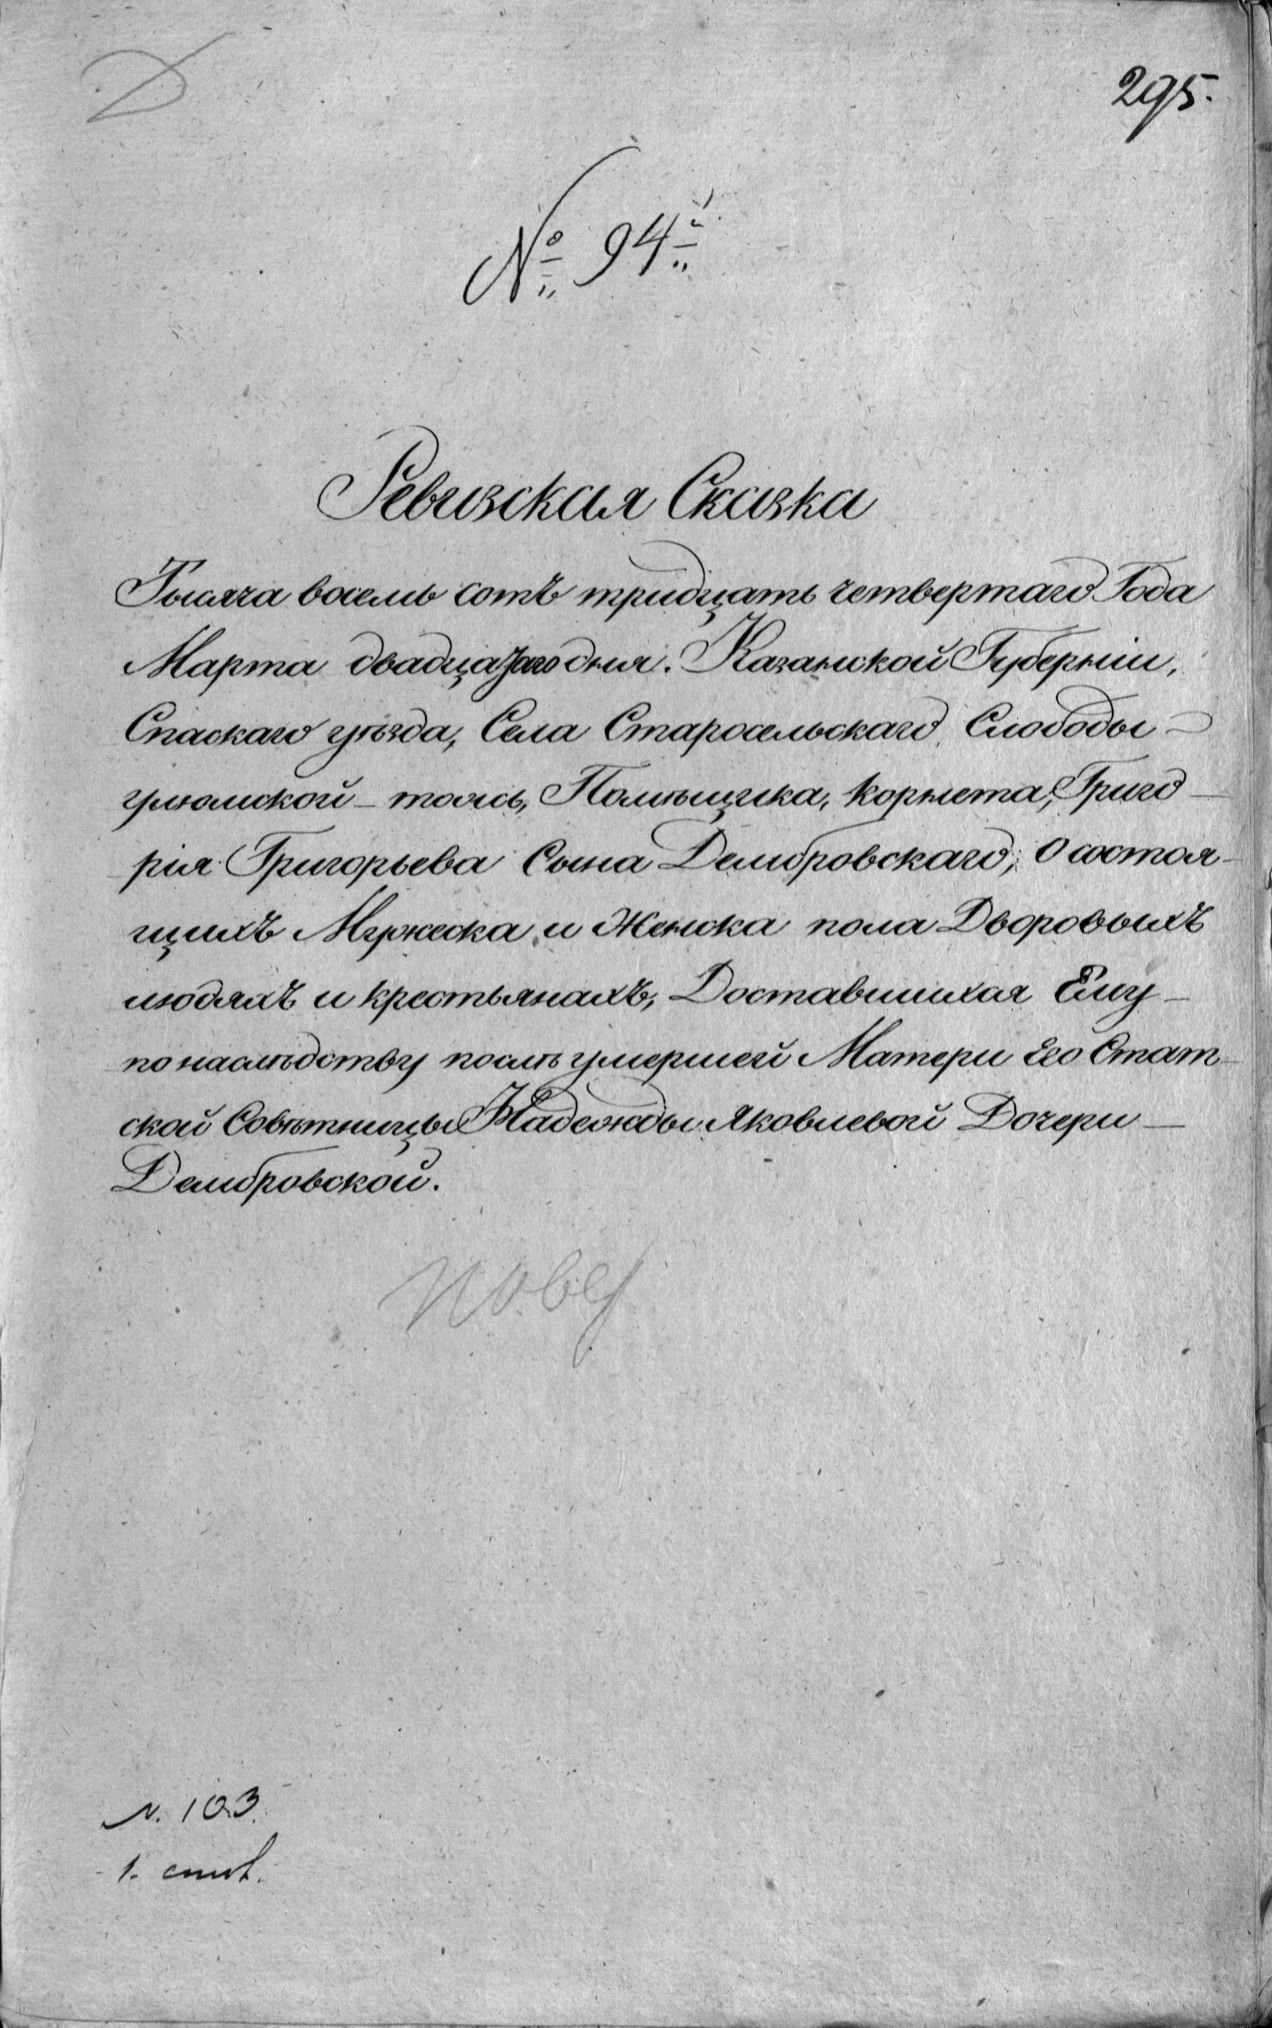 295.
№ 94й
Ревизская Сказка
Тысяча восемь сотъ тридцать четвертаго Года
Марта двадцатаго дня. Казанской Губерніи,
Спаскаго уѣзда, Села Старосельскаго Слободы
улюмской-тожъ, Помѣщика, корнета, Григо
рія Григорьева Сына Дембровскаго, О состоя
щихъ Мужеска и Женска пола Дворовыхъ
людяхъ и крестьянахъ, Доставшихся Ему
по наслѣдству послѣ умершей Матери Его Стат
ской Совѣтницы Надежды Яковлевой Дочери
Дембровской.
N. 103.